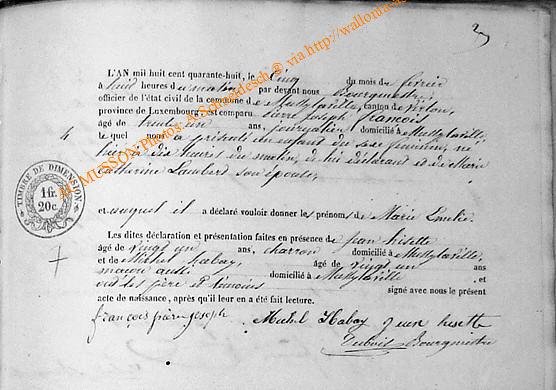 2
L'AN mil huit cent quarante-huit, le cinq du mois de février
à huit heures du matin par devant nous Bourgmestre,
officier de l'état civil de la commune de Mussy-la-ville, canton de Virton,
province de Luxembourg est comparu pierre joseph françois
âgé de trente un ans, domicilié à Mussy-la-ville,
lequel nous a présenté un enfant du sexe féminin, né
hier à dix heures du matin, de lui déclarant et de Marie
Catherine Lambert son épouse,
TIMBRE DE DIMENSION
1 fr.
20c
auquel il a déclaré vouloir donner les prénoms de Marie Emelie.
Les dites déclaration et présentation faites en présence de jean hisette
âgé de vingt un ans, charron domicilié à Mussy-la-ville,
et de Michel habay, âgé de vingt un ans
aussi domicilié à Mussy-la-ville, et
ont les père et témoins signé avec nous le présent
acte de naissance, après qu'il leur en a été fait lecture.
françois pierre joseph Michel Habay jean hisette
Bourgmestre
MUSSON Photos: A.Schroedesch@ via http://wallonia